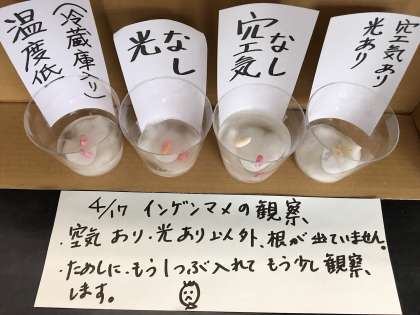 温度低
(冷蔵庫入り)
光なし
空気なし
空気あり
光あり
4/17 インゲンマメの観察
・空気あり・光あり以外、根が出ていません。
・ためしに、もう1つぶ入れてもう少し観察
します。